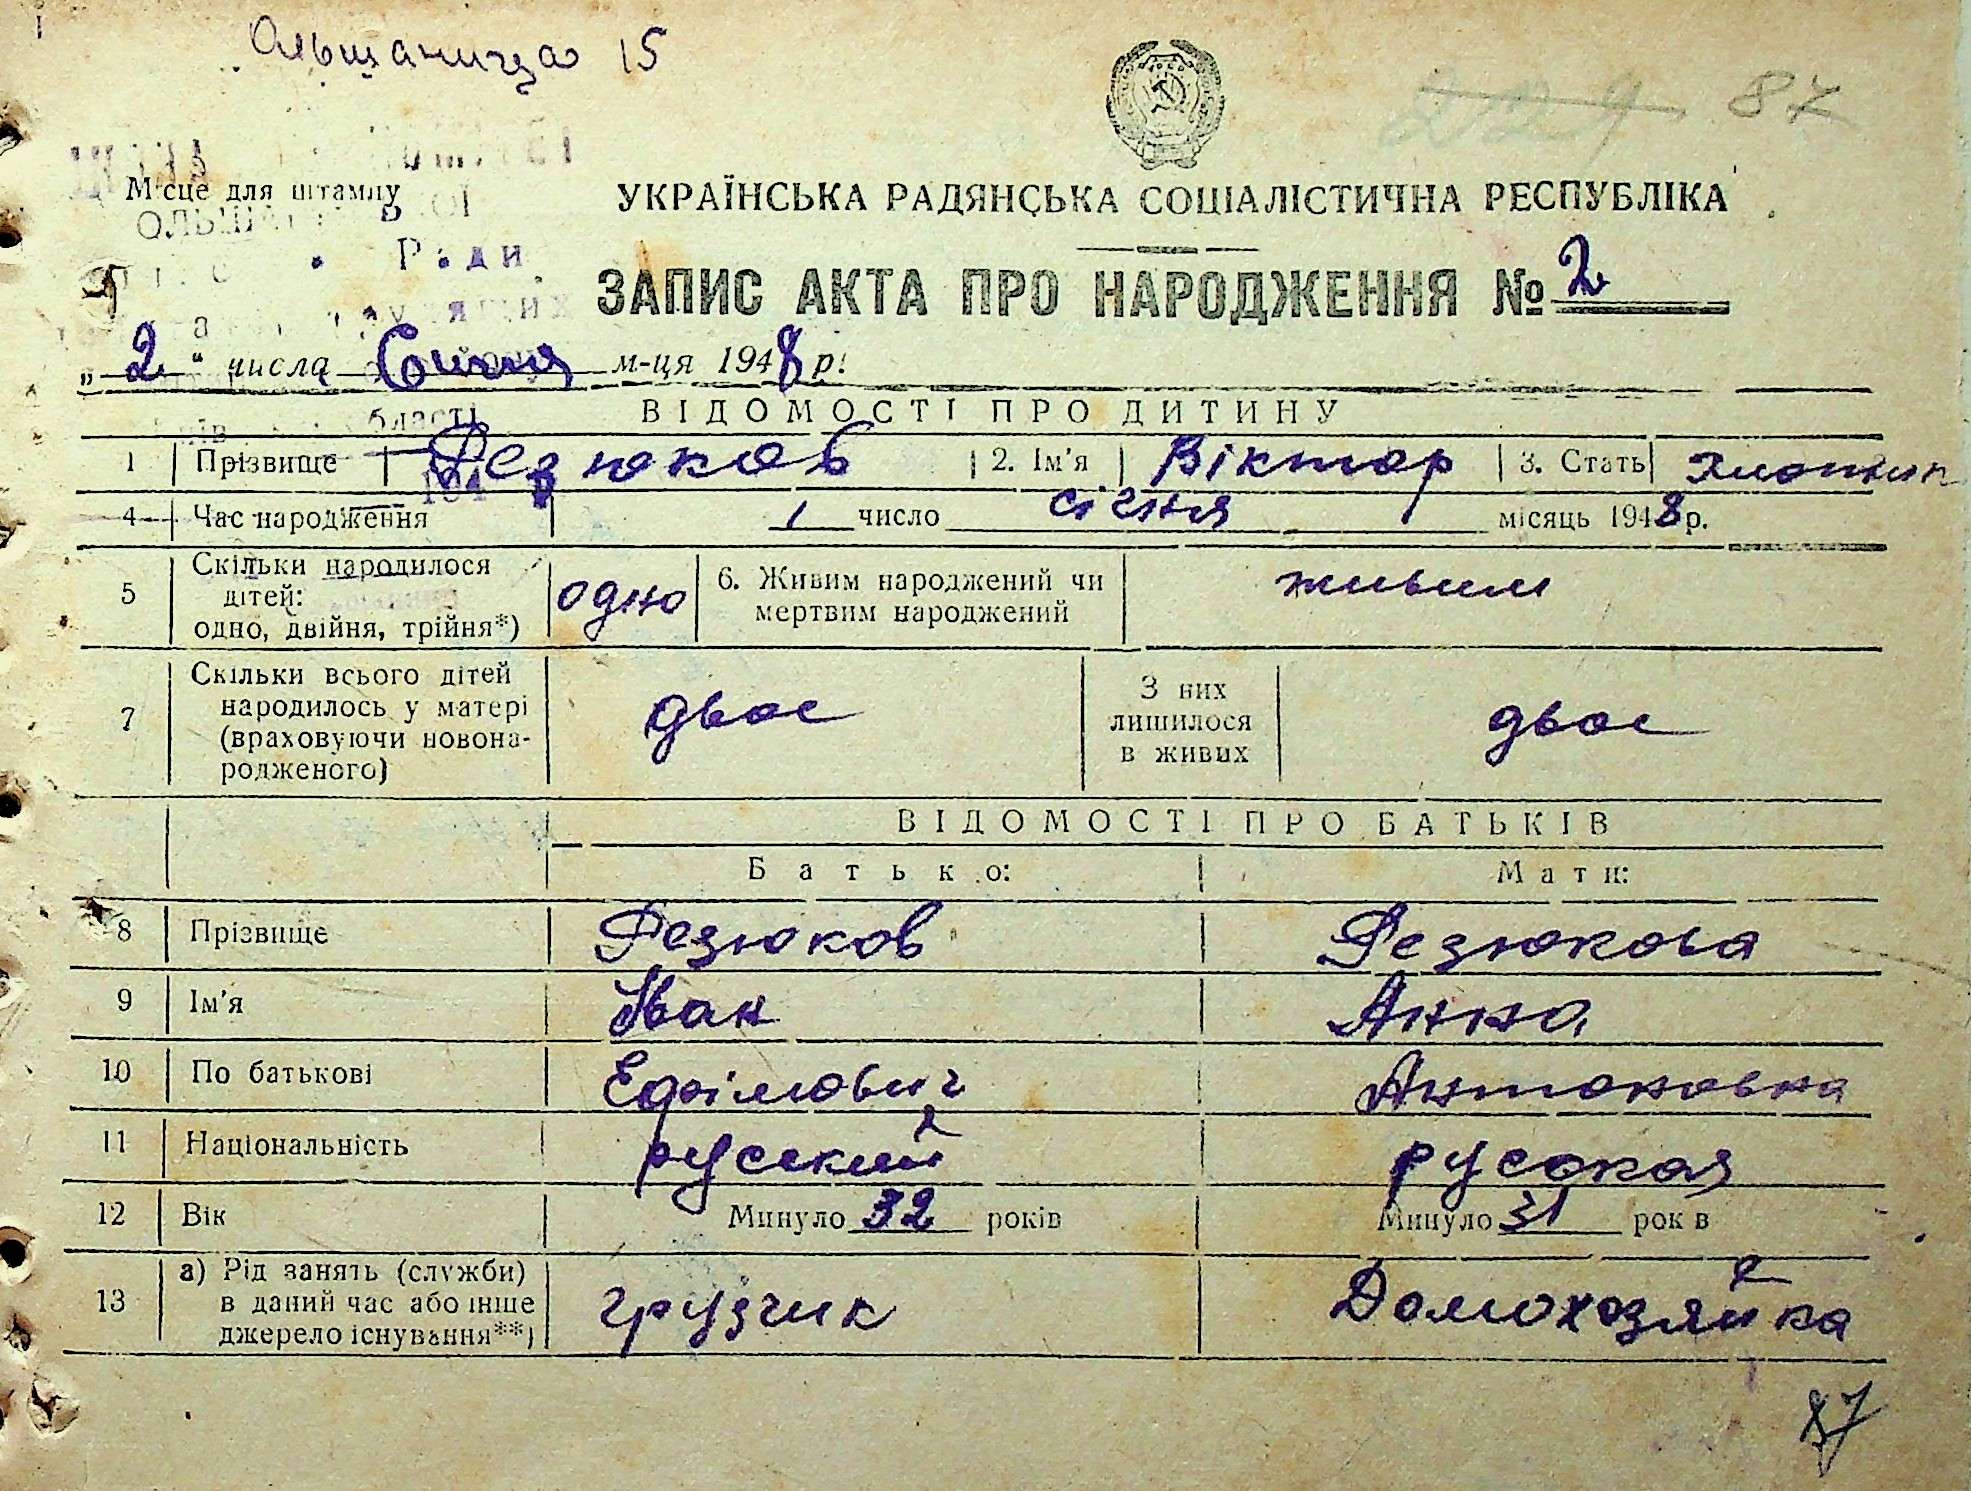 Ольшаниця 15
87
Місце для штампу
УКРАЇНСЬКА РАДЯНСЬКА СОЦІАЛІСТИЧНА РЕСПУБЛІКА
Ради
ЗАПИС АКТА ПРО НАРОДЖЕННЯ № 2
„2" числа Січня м-ця 1948 р.
області
ВІДОМОСТІ ПРО ДИТИНУ
1 Прізвище Резюков 2. Ім'я Віктор 3. Стать хлопчик
4 Час народження 1 число січня місяць 1948 р.
5 Скільки народилося дітей: одно, двійня, трійня*) одно 6. Живим народжений чи мертвим народжений живим
7 Скільки всього дітей народилось у матері (враховуючи новонародженого) двоє З них лишилося в живих двоє
ВІДОМОСТІ ПРО БАТЬКІВ
Батько: Мати:
8 Прізвище Резюков Резюкова
9 Ім'я Іван Анна
10 По батькові Ефімович Антоновна
11 Національність русский русская
12 Вік Минуло 32 років Минуло 31 років
13 а) Рід занять (служби) в даний час або інше джерело існування**) грузчик Домохозяйка
87